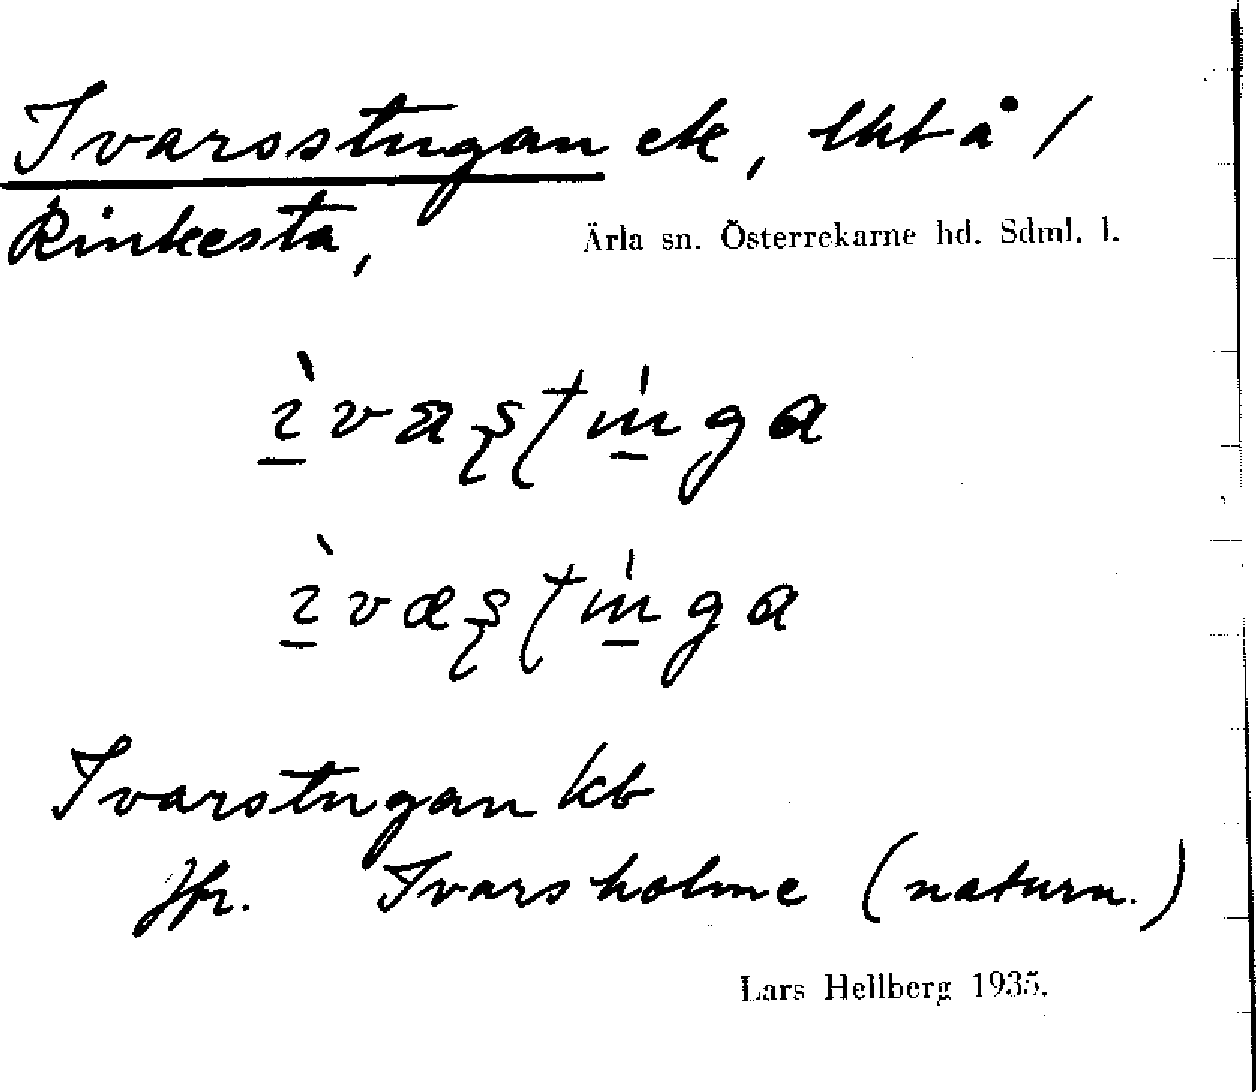 Ivarsstugan ek, lht å /
Rinkesta,
Ärla sn. Österrekarne hd. Sdml. l.
Ivarstugan kb
Jfr. Ivarsholme (naturn.)
Lars Hellberg 1935.